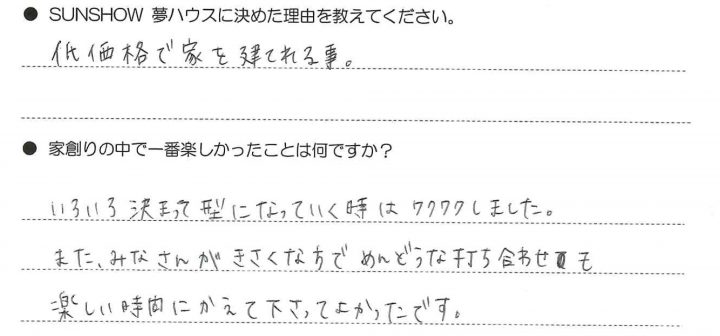 ● SUNSHOW 夢ハウスに決めた理由を教えてください。
低価格で家を建てれる事。
● 家創りの中で一番楽しかったことは何ですか？
いろいろ決まって型になっていく時はワクワクしました。
また、みなさんがきさくな方でめんどうな打ち合わせも
楽しい時間にかえて下さってよかったです。